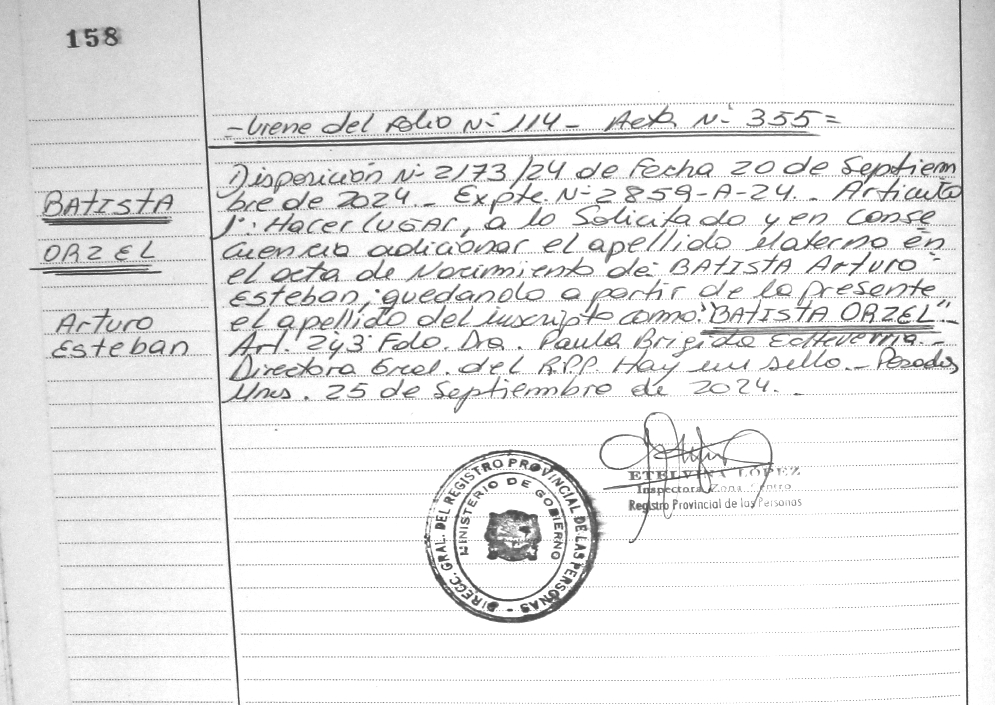 158
-Viene del Folio N- 114- Acta N- 355=
BATISTA
ORZEL
Arturo
Esteban
Disposición N- 2173/24 de Fecha 20 de Septiem
bre de 2024.- Expte. N- 2859-A-24.- Articulo
1: Hacer LUGAR, a lo Solicitado y en conse
cuencia adicionar el apellido Materno en
el acta de Nacimiento de: BATISTA Arturo-
Esteban; quedando a partir de la presente
el apellido del inscripto como: "BATISTA ORZEL"-
Art. 243 Fdo. Dra. Paula Brigida Echeverria.-
Directora Gral. del R.P.P. Hay un sello.- Posadas,
Mnes. 25 de Septiembre de 2024.-
ETELVINA LOPEZ
Inspectora Zona Centro
Registro Provincial de las Personas
DIRECC. GRAL. DEL REGISTRO PROVINCIAL DE LAS PERSONAS -
MINISTERIO DE GOBIERNO